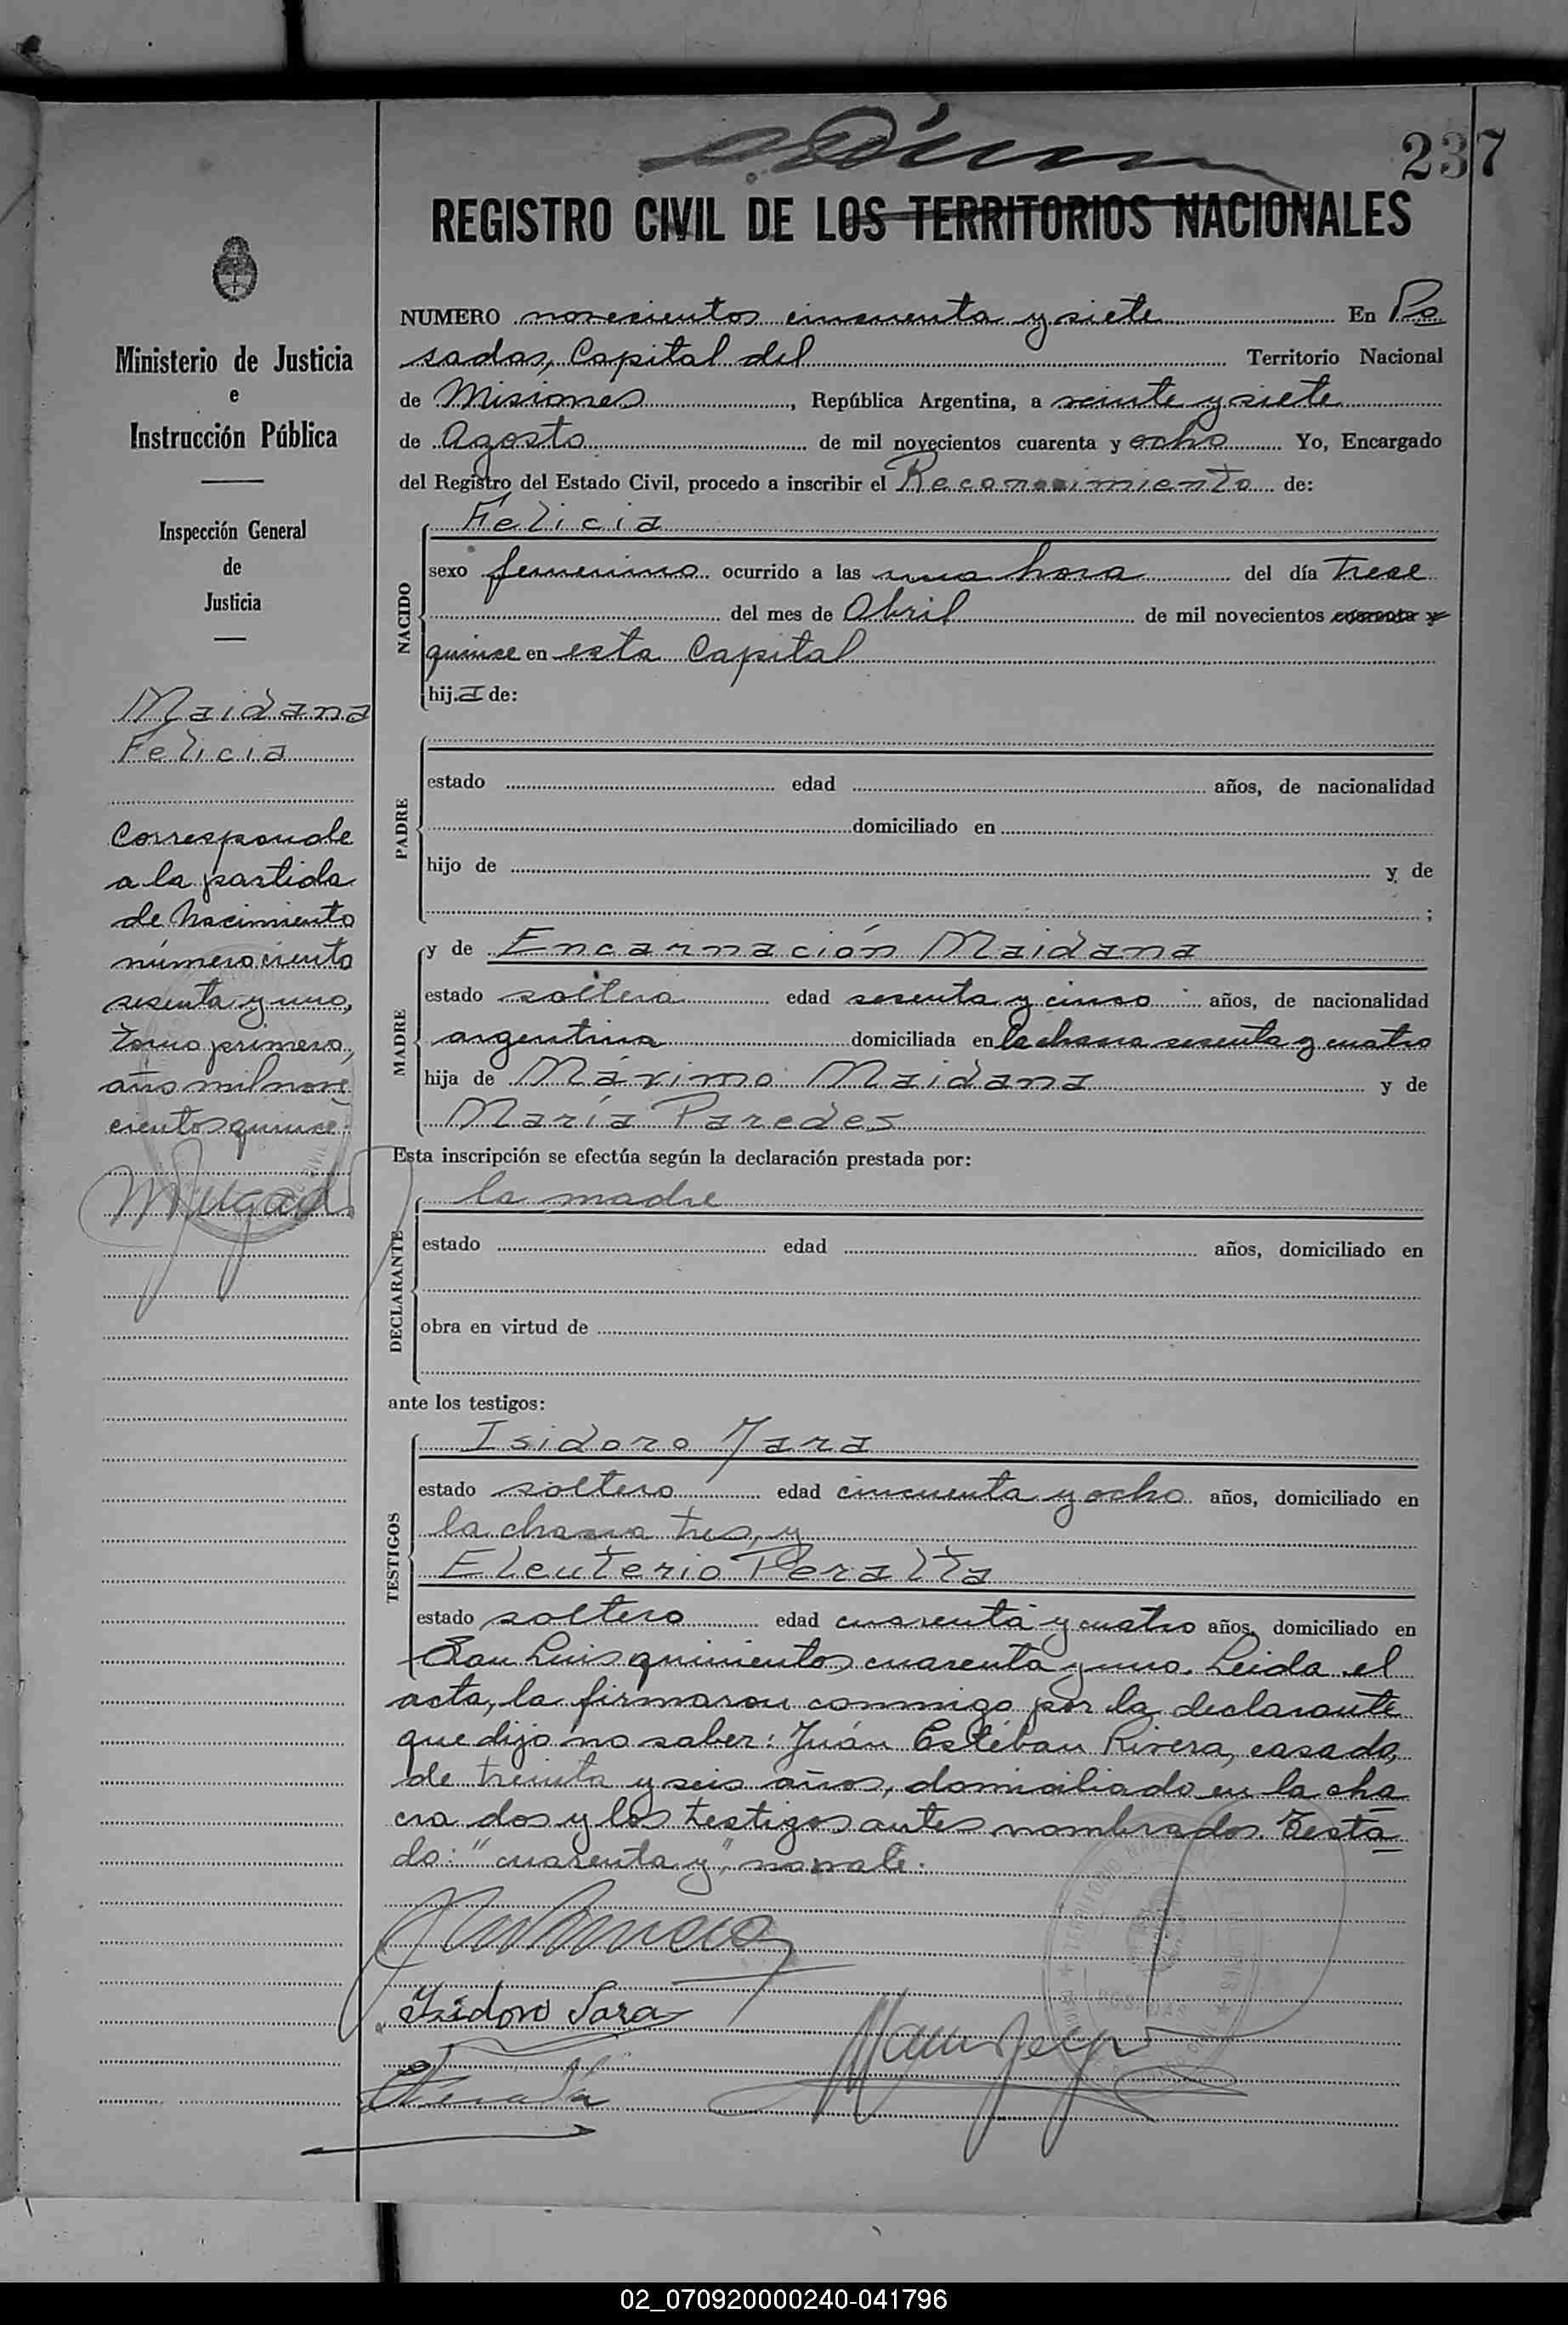 237
REGISTRO CIVIL DE LOS TERRITORIOS NACIONALES
NUMERO novecientos cincuenta y siete En Po
sadas, Capital del Territorio Nacional
de Misiones, República Argentina, a veinte y siete
de Agosto de mil novecientos cuarenta y ocho Yo, Encargado
del Registro del Estado Civil, procedo a inscribir el Reconocimiento de:
NACIDO
Felicia
sexo femenino ocurrido a las una hora del día trece
del mes de Abril de mil novecientos cuarenta y
quince en esta Capital
hija de:
PADRE
estado edad años, de nacionalidad
domiciliado en
hijo de y de
;
MADRE
y de Encarnación Maidana
estado soltera edad sesenta y cinco años, de nacionalidad
argentina domiciliada en la chacra sesenta y cuatro
hija de Máximo Maidana y de
María Paredes
Esta inscripción se efectúa según la declaración prestada por:
DECLARANTE
la madre
estado edad años, domiciliado en
obra en virtud de
ante los testigos:
TESTIGOS
Isidoro Jara
estado soltero edad cincuenta y ocho años, domiciliado en
la chacra tres, y
Eleuterio Peralta
estado soltero edad cuarenta y cuatro años, domiciliado en
San Luis quinientos cuarenta y uno. Leida el
acta, la firmaron conmigo por la declarante
que dijo no saber: Juán Estéban Rivera, casado,
de treinta y seis años, domiciliado en la cha
cra dos y los testigos antes nombrados. Testa
do: "cuarenta y", no vale.
Isidoro Jara
Ministerio de Justicia
e
Instrucción Pública
Inspección General
de
Justicia
Maidana
Felicia
Corresponde
a la partida
de Nacimiento
número ciento
sesenta y uno,
tomo primero,
año mil nove
cientos quince.
02_070920000240-041796